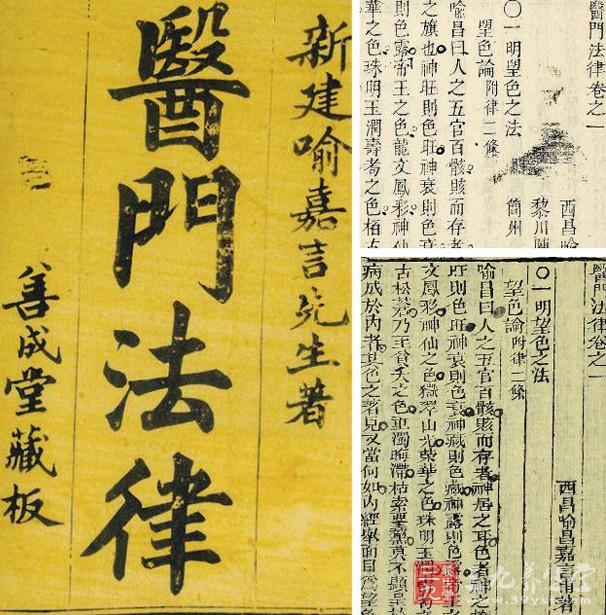 新建喻嘉言先生著
醫門法律
善成堂藏板
醫門法律卷之一
西昌喻
黎川陳
簡州
〇一明望色之法
望色論附律二條
喻昌曰人之五官百骸賅而存者
之旗也神旺則色旺神衰則色衰
則色露帝王之色龍文鳳彩神仙
華之色珠明玉潤壽耇之色柏古
醫門法律卷之一
西昌喻昌嘉言甫著
〇一明望色之法
望色論附律二條
喻昌曰人之五官百骸賅而存者神居之耳色者神之
旺則色旺神衰則色衰神藏則色藏神露則色
文鳳彩神仙之色嶽翠山光榮華之色珠明玉潤
古松蒼乃至貧夭之色重濁晦滯枯索莫不顯呈
病成於內者其色之著見又當何如內經舉面目爲望